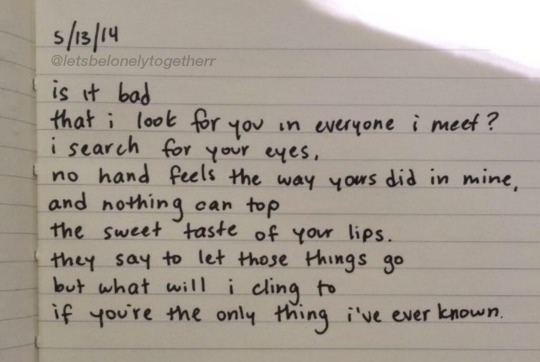 5/13/14
@letsbelonelytogetherr
is it bad
that i look for you in everyone i meet?
i search for your eyes,
no hand feels the way yours did in mine,
and nothing can top
the sweet taste of your lips.
they say to let those things go
but what will i cling to
if you're the only thing i've ever known.